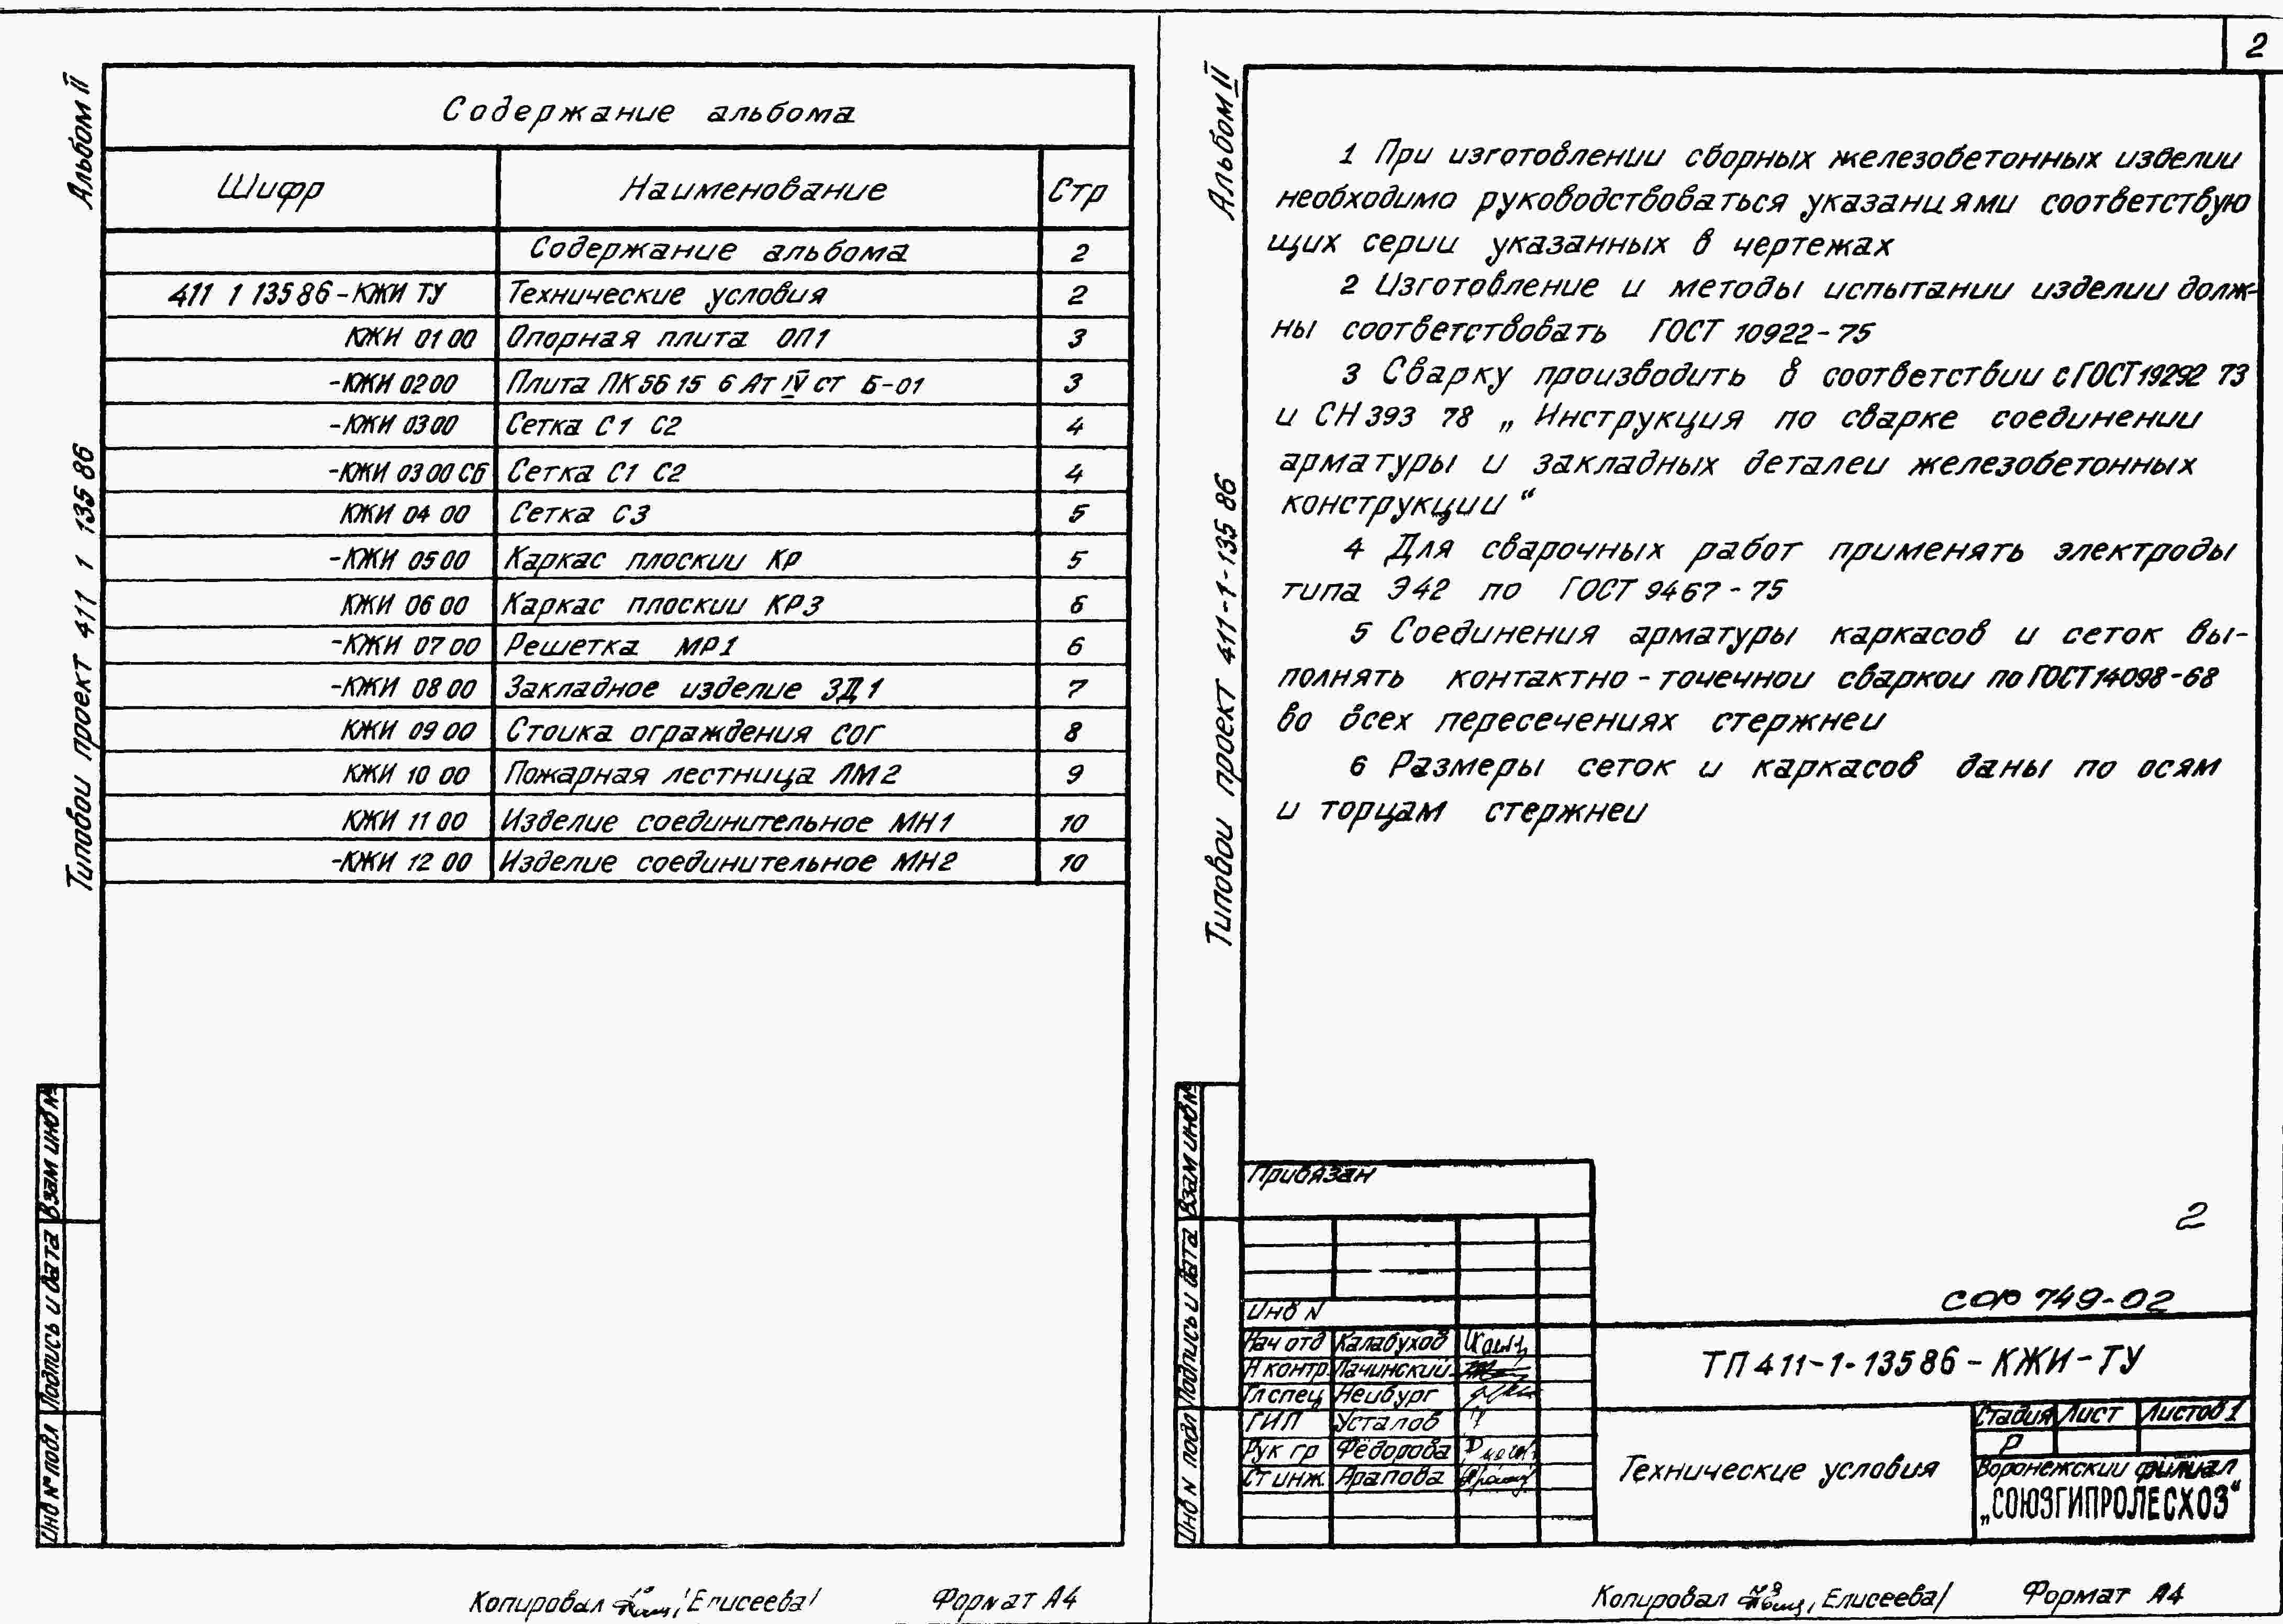 2
Альбом II
Типовои проект 411 1 135 86
Содержание альбома
Шифр Наименование Стр
Содержание альбома 2
411 1 135 86 - КЖИ ТУ Технические условия 2
КЖИ 01 00 Опорная плита ОП1 3
-КЖИ 02 00 Плита ПК 56 15 6 Ат IV ст Б-01 3
-КЖИ 03 00 Сетка С1 С2 4
-КЖИ 03 00 СБ Сетка С1 С2 4
КЖИ 04 00 Сетка С3 5
-КЖИ 05 00 Каркас плоскии КР 5
КЖИ 06 00 Каркас плоскии КР3 6
-КЖИ 07 00 Решетка МР1 6
-КЖИ 08 00 Закладное изделие ЗД1 7
КЖИ 09 00 Стоика ограждения СОГ 8
КЖИ 10 00 Пожарная лестница ЛМ2 9
КЖИ 11 00 Изделие соединительное МН1 10
-КЖИ 12 00 Изделие соединительное МН2 10
Взам инв №
Подпись и дата
Инв № подл
Копировал Елисеева/ Формат А4
Альбом II
Типовои проект 411-1-135 86
1 При изготовлении сборных железобетонных изделии
необходимо руководствоваться указаниями соответствую
щих серии указанных в чертежах
2 Изготовление и методы испытании изделии долж-
ны соответствовать ГОСТ 10922-75
3 Сварку производить в соответствии с ГОСТ 19292 73
и СН 393 78 „Инструкция по сварке соединении
арматуры и закладных деталеи железобетонных
конструкции“
4 Для сварочных работ применять электроды
типа Э42 по ГОСТ 9467-75
5 Соединения арматуры каркасов и сеток вы-
полнять контактно-точечнои сваркои по ГОСТ 14098-68
во всех пересечениях стержнеи
6 Размеры сеток и каркасов даны по осям
и торцам стержнеи
Взам инв №
Подпись и дата
Инв N подл
Привязан
Инв N
2
СФ 749-02
Нач отд Калабухов
Н контр. Лачинский
Гл спец Неибург
ГИП Усталов
Рук гр Фёдорова
Ст инж. Арапова
ТП 411-1-135 86 - КЖИ-ТУ
Технические условия
Стадия Лист Листов 1
Р
Воронежскии филиал
„СОЮЗГИПРОЛЕСХОЗ“
Копировал Елисеева/ Формат А4